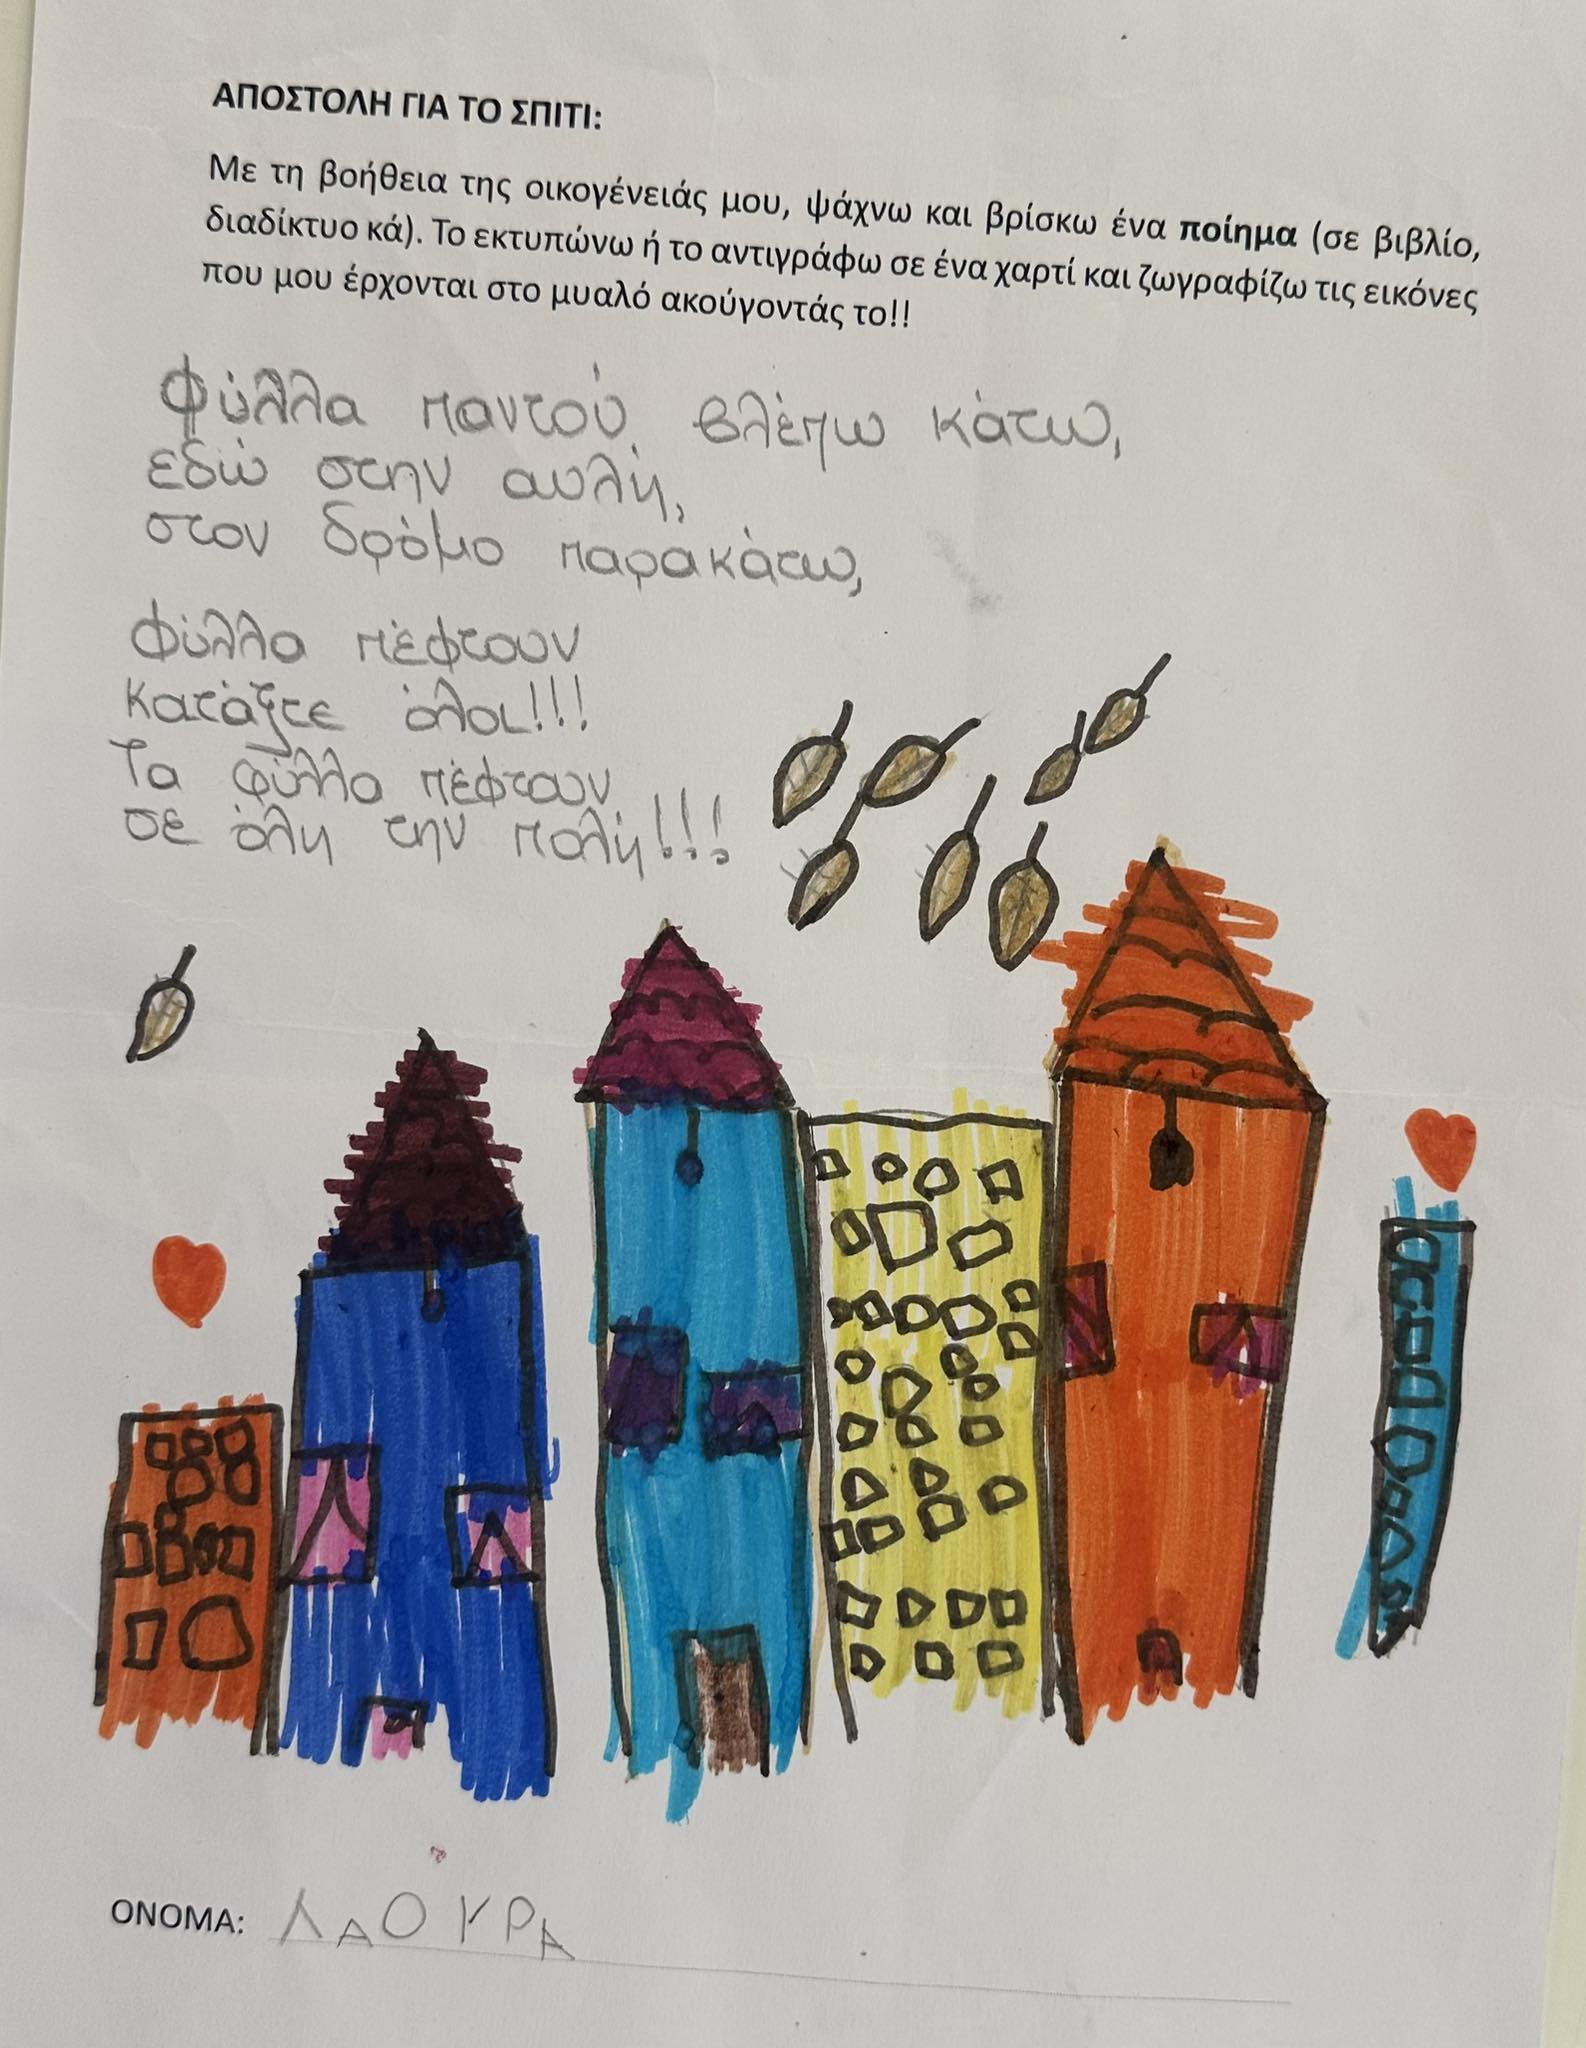 ΑΠΟΣΤΟΛΗ ΓΙΑ ΤΟ ΣΠΙΤΙ:
Με τη βοήθεια της οικογένειάς μου, ψάχνω και βρίσκω ένα ποίημα (σε βιβλίο,
διαδίκτυο κά). Το εκτυπώνω ή το αντιγράφω σε ένα χαρτί και ζωγραφίζω τις εικόνες
που μου έρχονται στο μυαλό ακούγοντάς το!!
Φύλλα παντού βλέπω κάτω,
εδώ στην αυλή,
στον δρόμο παρακάτω,
Φύλλα πέφτουν
κατάξτε όλοι!!!
Τα φύλλα πέφτουν
σε όλη την πολή!!!
ΟΝΟΜΑ: ΛΑΟΥΡΑ